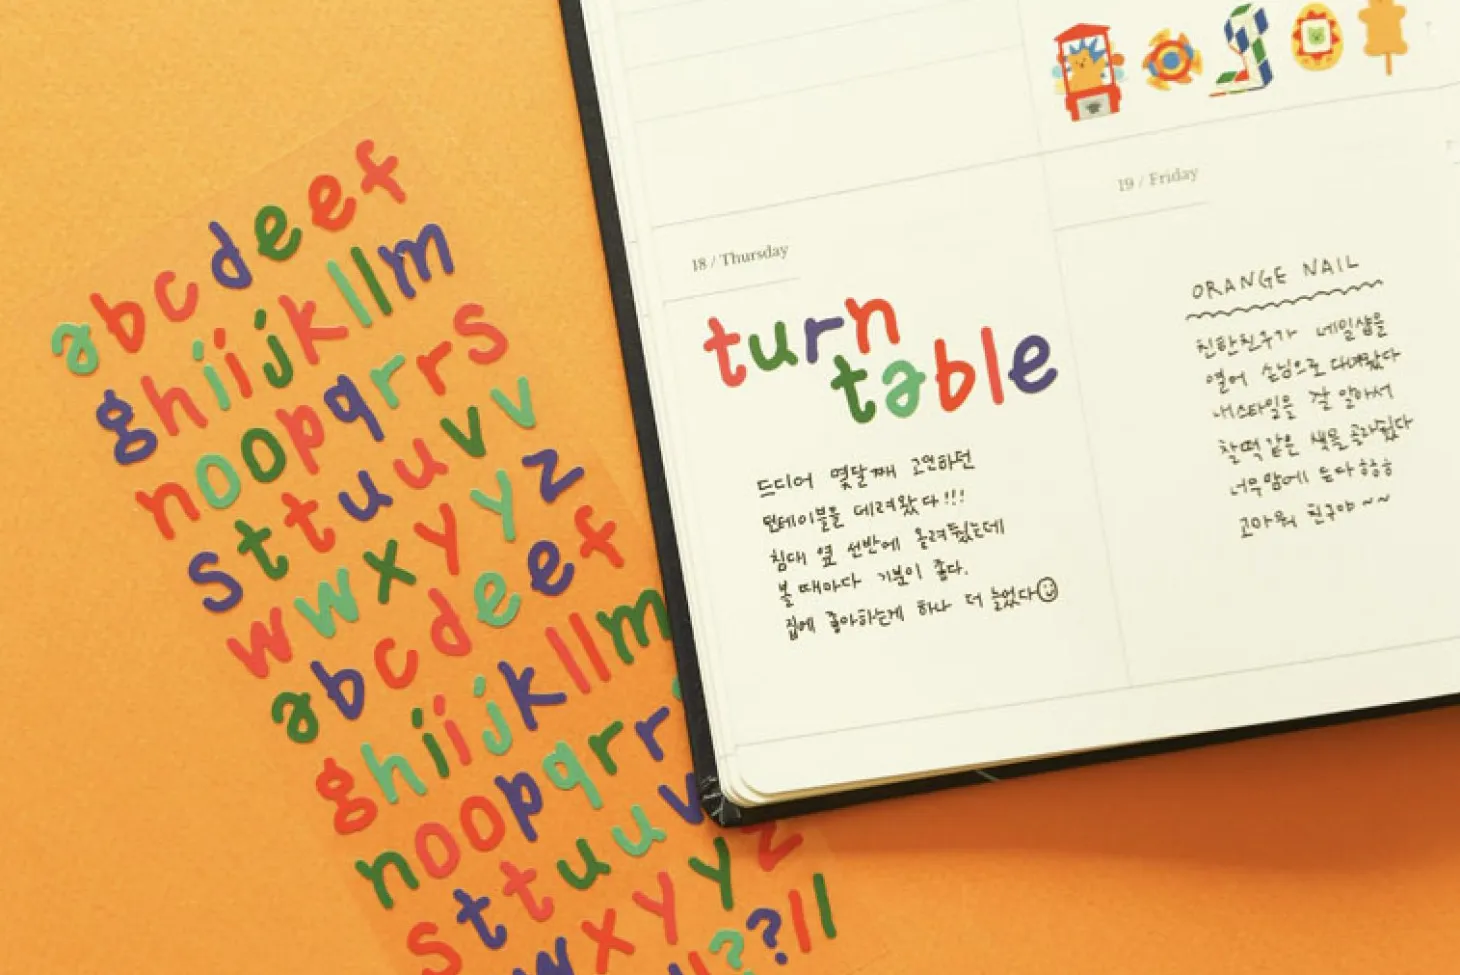 a b c d e e f
g h i i j k l l m
n o o p q r r s
s t t u u v v
w w x y y z
a b c d e e f
g h i i j k l l m
n o o p q r r
s t t u u v
w x y y z
? ? ! !
18 / Thursday
turn
table
드디어 몇달째 고민하던
턴테이블을 데려왔다!!!
침대 옆 선반에 올려뒀는데
볼 때마다 기분이 좋다.
집에 좋아하는게 하나 더 늘었다
19 / Friday
ORANGE NAIL
친한친구가 네일샵을
열어 손님으로 다녀왔다
내스타일을 잘 알아서
찰떡 같은 색을 골라줬다
너무맘에 든다 ㅎㅎㅎ
고마워 친구야~~